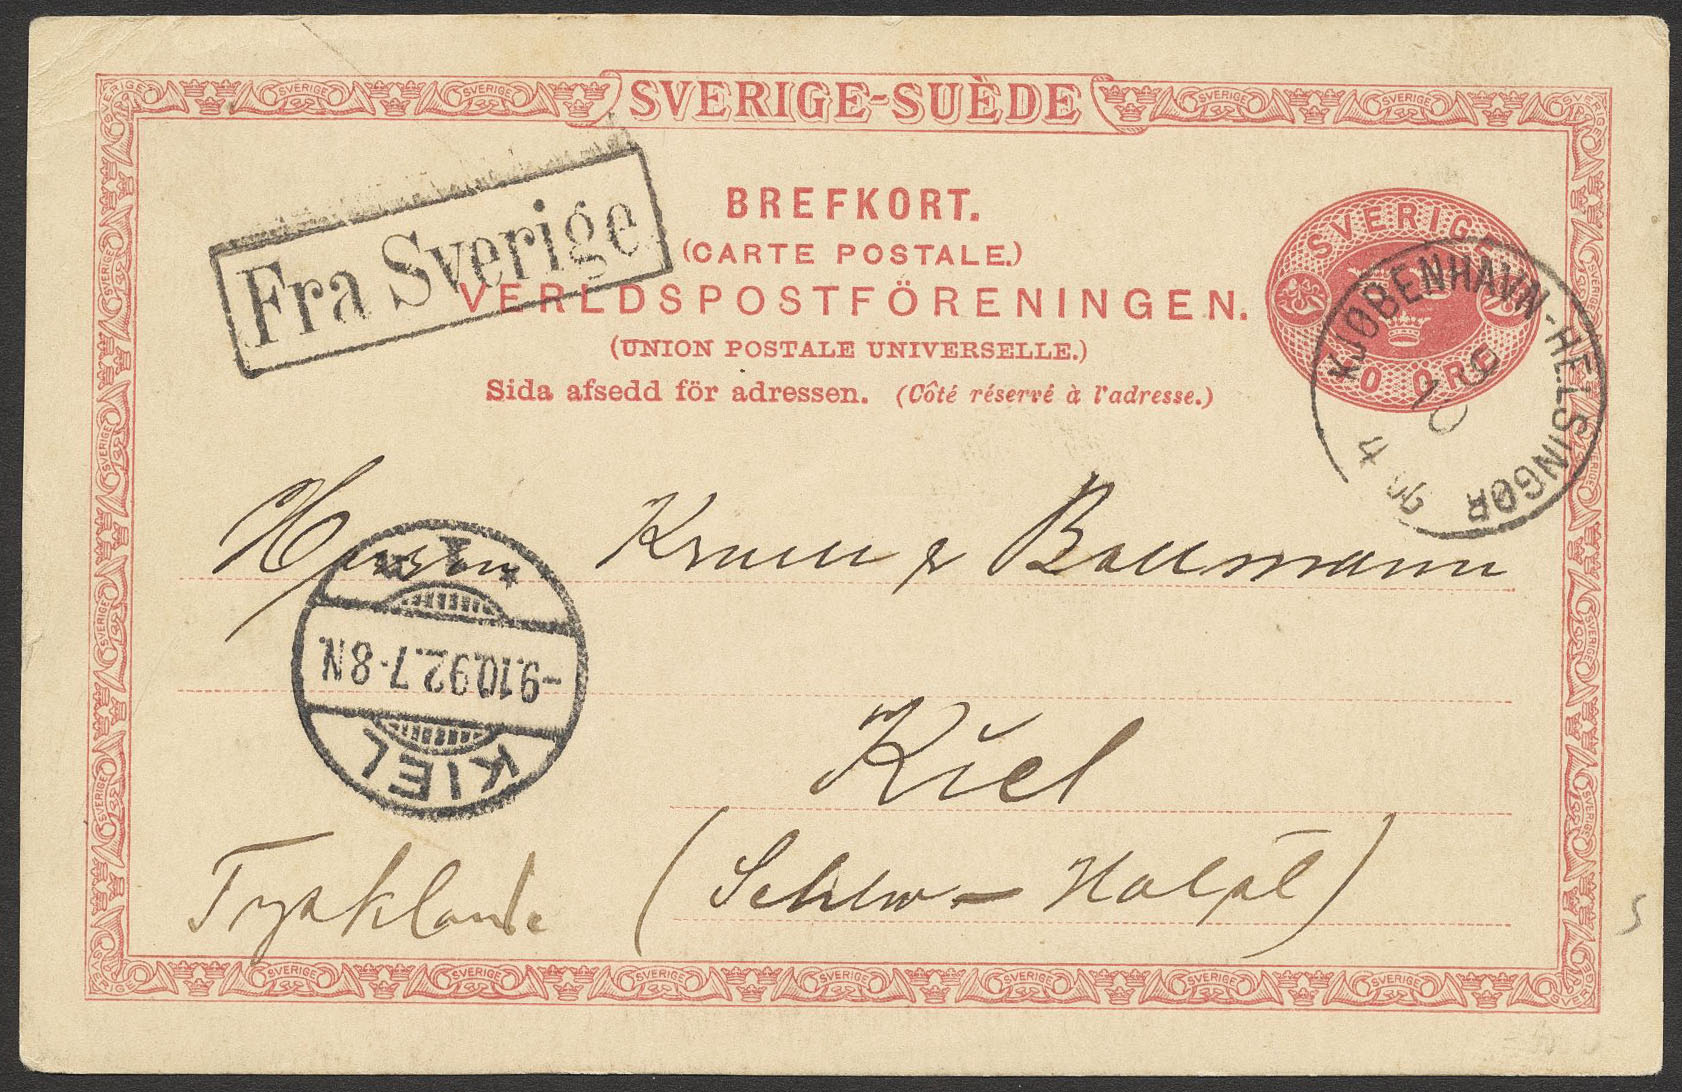 SVERIGE-SUÈDE
BREFKORT.
(CARTE POSTALE.)
VERLDSPOSTFÖRENINGEN.
(UNION POSTALE UNIVERSELLE.)
Sida afsedd för adressen. (Côté réservé à l'adresse.)
Fra Sverige
SVERIGE
10 ÖRE
KJØBENHAVN-HELSINGØR
Herren Kruse & Baumann
Kiel
(Schlw- Holst)
Tyskland
KIEL
-9.10.92.7-8N.
1